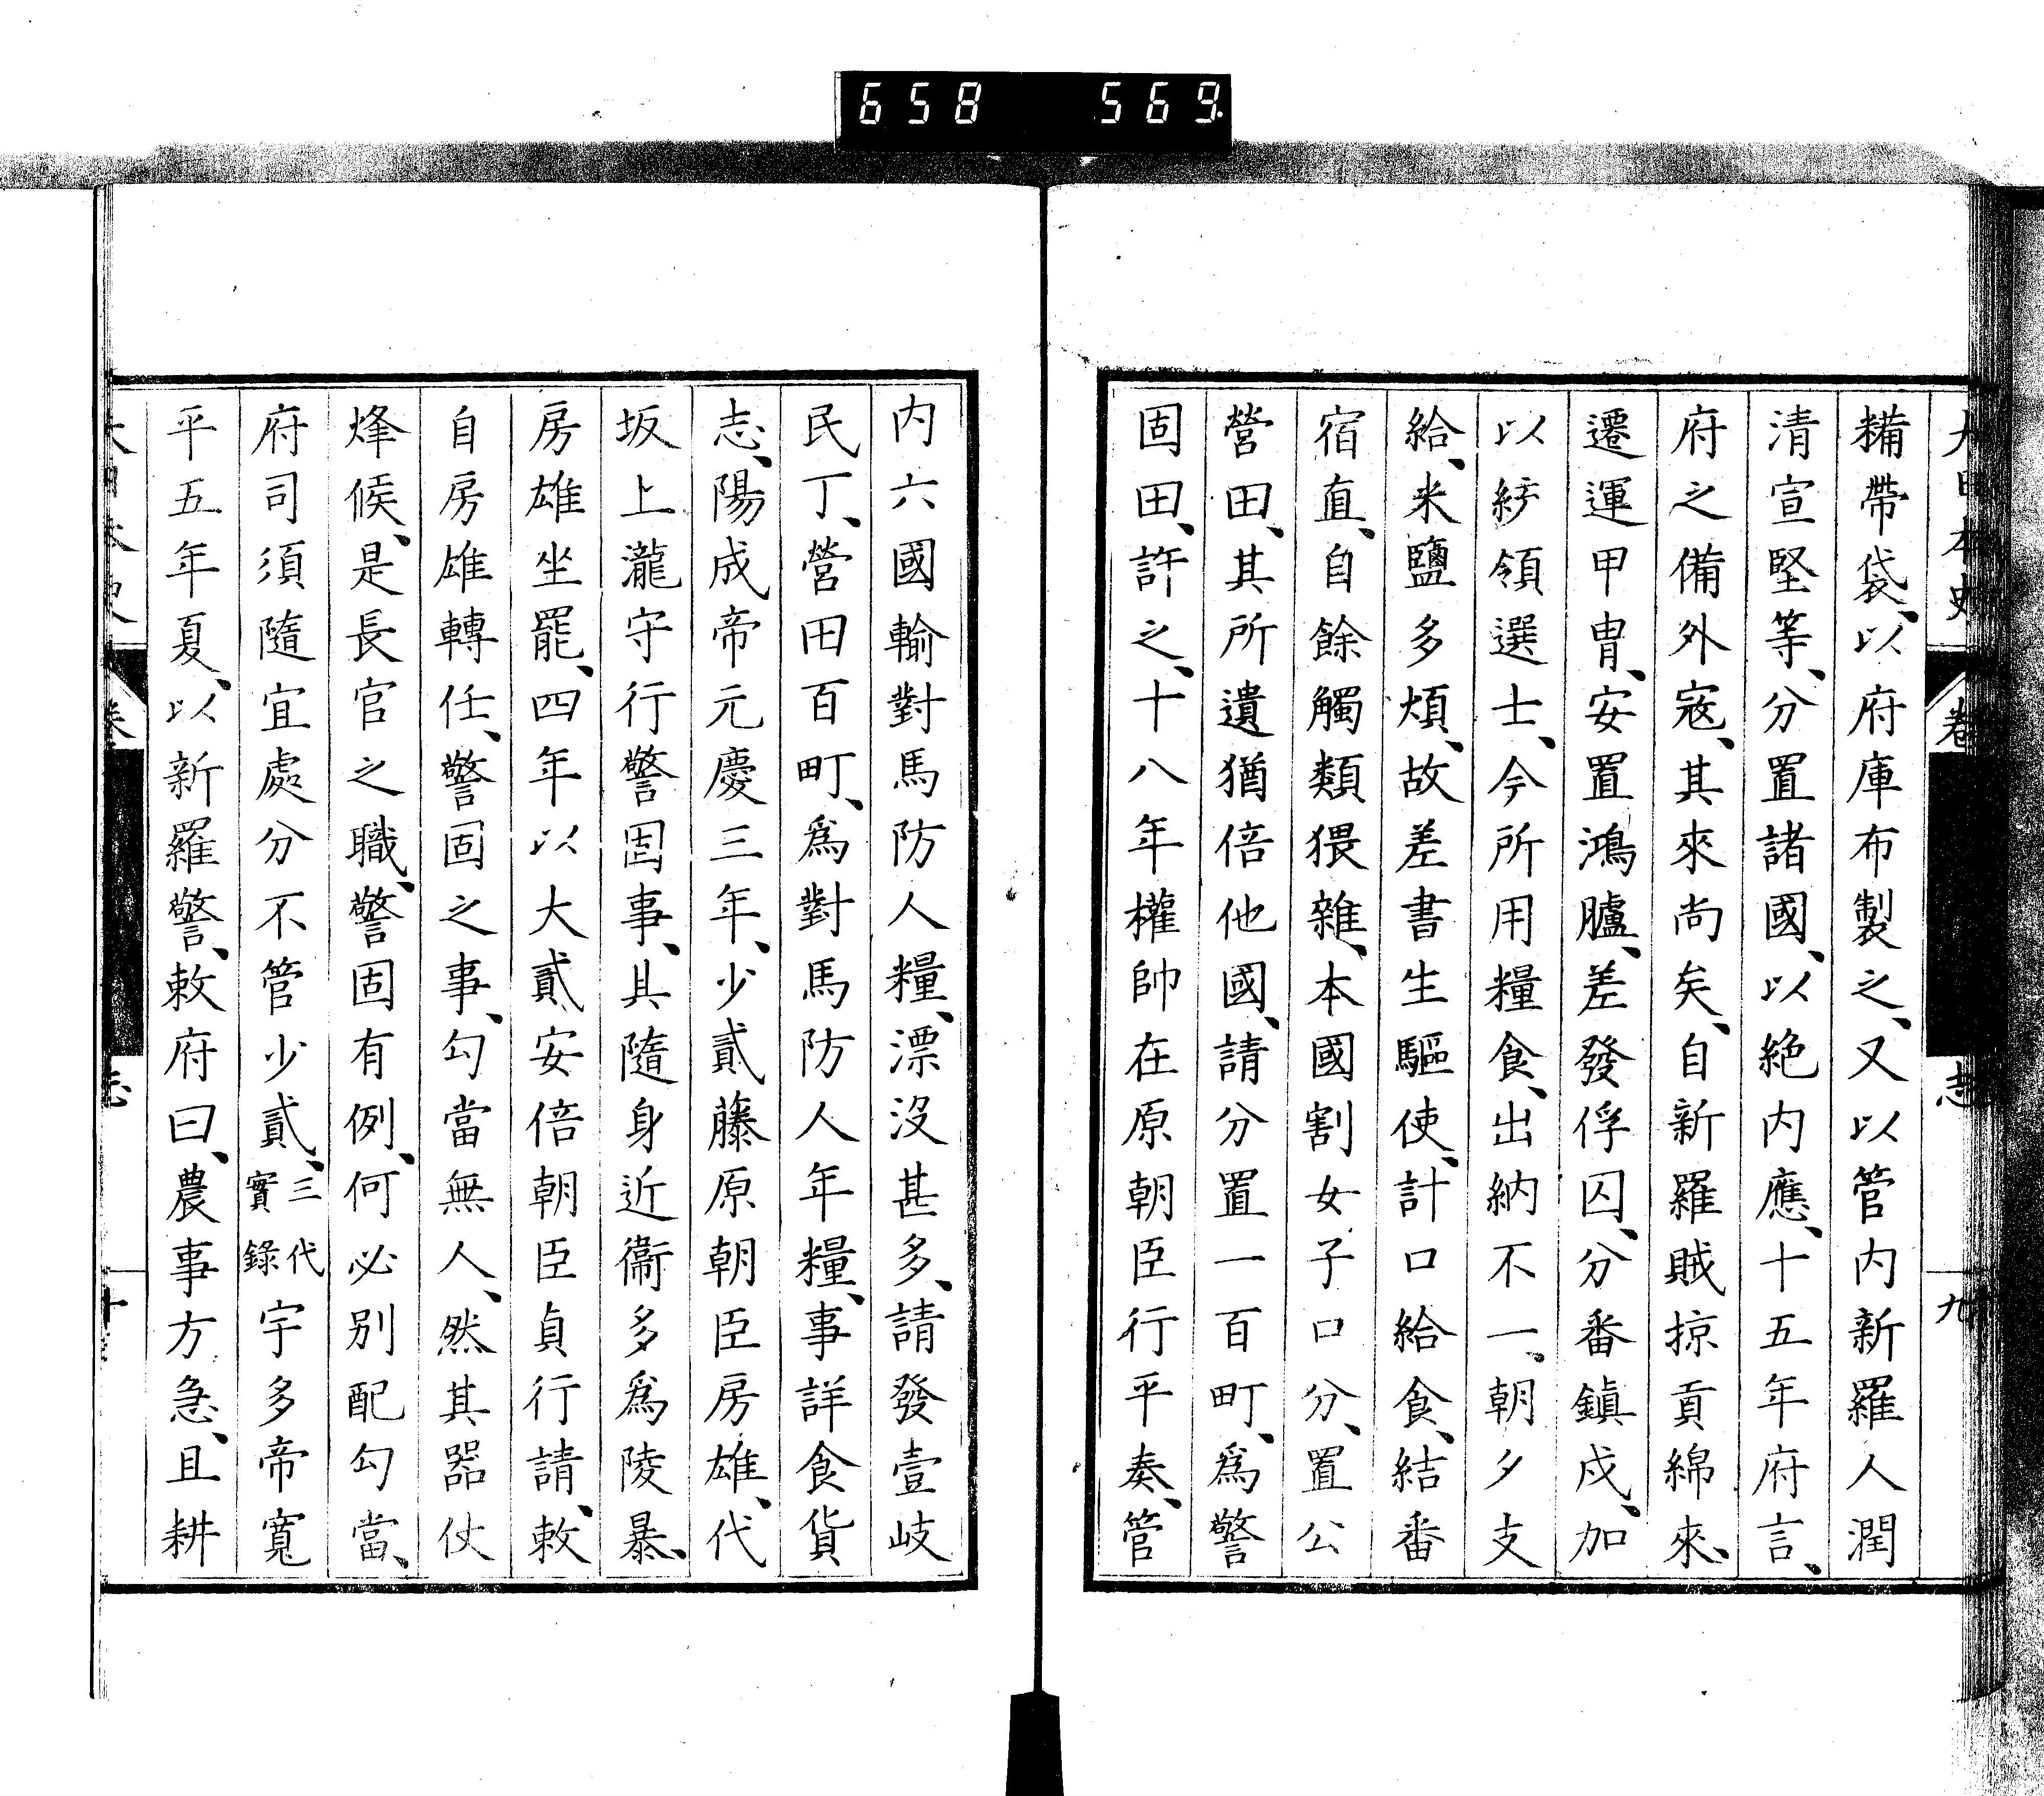 658 569
大日本史 卷 志 九
糒帶袋、以府庫布製之、又以管内新羅人潤
清宣堅等、分置諸國、以絶内應、十五年府言、
府之備外寇、其來尚矣、自新羅賊掠貢綿來、
遷運甲冑、安置鴻臚、差發俘囚、分番鎭戍、加
以統領選士、今所用糧食、出納不一、朝夕支
給、米鹽多煩、故差書生驅使、計口給食、結番
宿直、自餘觸類猥雜、本國割女子口分、置公
營田、其所遺猶倍他國、請分置一百町、爲警
固田、許之、十八年權帥在原朝臣行平奏、管
内六國輸對馬防人糧、漂沒甚多、請發壹岐
民丁、營田百町、爲對馬防人年糧、事詳食貨
志、陽成帝元慶三年、少貳藤原朝臣房雄、代
坂上瀧守行警固事、具隨身近衞多爲陵暴、
房雄坐罷、四年以大貳安倍朝臣貞行請、敕
自房雄轉任、警固之事、勾當無人、然其器仗
烽候、是長官之職、警固有例、何必別配勾當、
府司須隨宜處分不管少貳、三代實錄宇多帝寬
平五年夏、以新羅警、敕府曰、農事方急、且耕